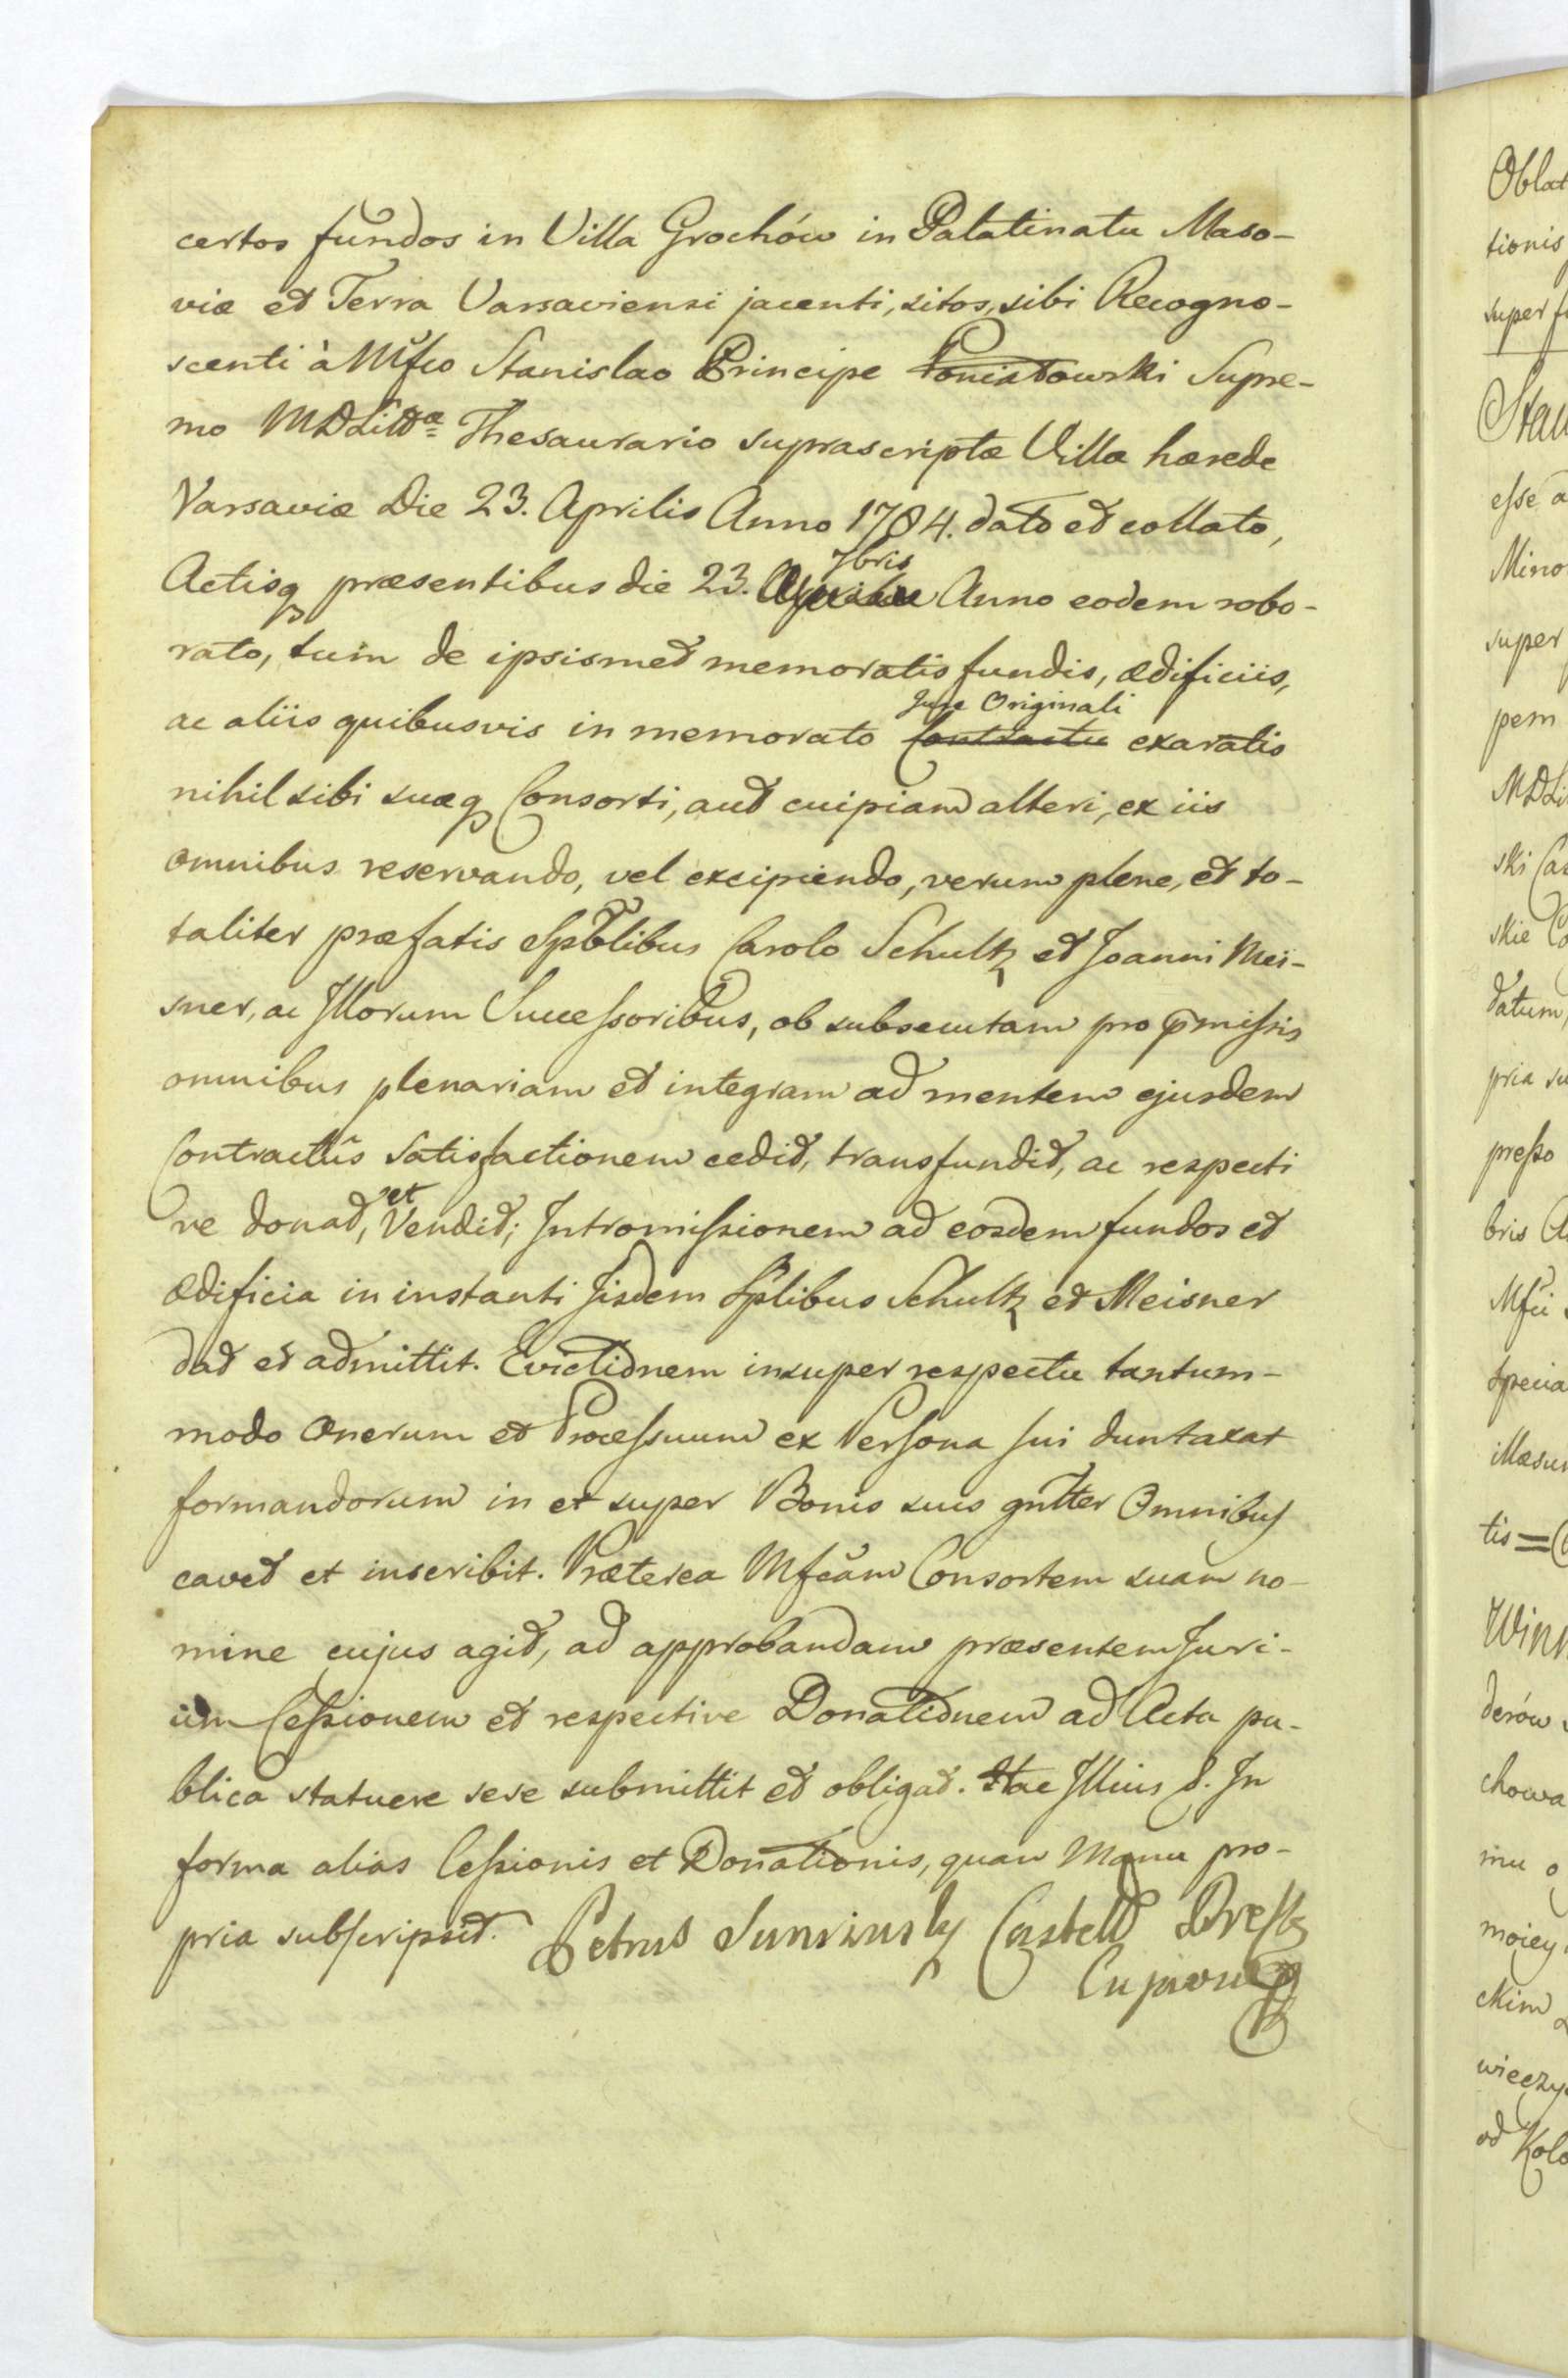 certos fundos in Villa Grochów in Palatinatu Maso-
viæ et Terra Varsaviensi jacenti, sitos, sibi Recogno-
scenti à Mfco Stanislao Principe Poniatowski Supre-
mo MDLittæ Thesaurario suprascriptæ Villæ hærede
Varsaviæ Die 23. Aprilis Anno 1784. dato et collato,
7bris
Actisq præsentibus die 23. Anno eodem robo-
rato, tum de ipsismet memoratis fundis, ædificiis,
Jure Originali
ac aliis quibusvis in memorato Contractu exaratis
nihil sibi suæq Consorti, aut cuipiam alteri, ex iis
omnibus reservando, vel excipiendo, verum plene, et to-
taliter præfatis Spblibus Carolo Schultz et Joanni Mei-
sner, ac Illorum Successoribus, ob subsecutam pro pmissis
omnibus plenariam et integram ad mentem ejusdem
Contractûs satisfactionem cedit, transfundit, ac respecti
et
ve donat, Vendit; Intromissionem ad eosdem fundos et
ædificia in instanti Iisdem Splibus Schultz et Meisner
dat et admittit. Evictionem insuper respectu tantum-
modo Onerum et Processuum ex Persona sui duntaxat
formandorum in et super Bonis suis gnlter Omnibus
cavet et inscribit. Præterea Mfcam Consortem suam no-
mine cujus agit, ad approbandam præsentem Juri-
um Cessionem et respective Donationem ad Acta pu-
blica statuere sese submittit et obligat. Hac Illius S. In
forma alias Cessionis et Donationis, quam Manu pro-
pria subscripsit. Petrus Castell Brest